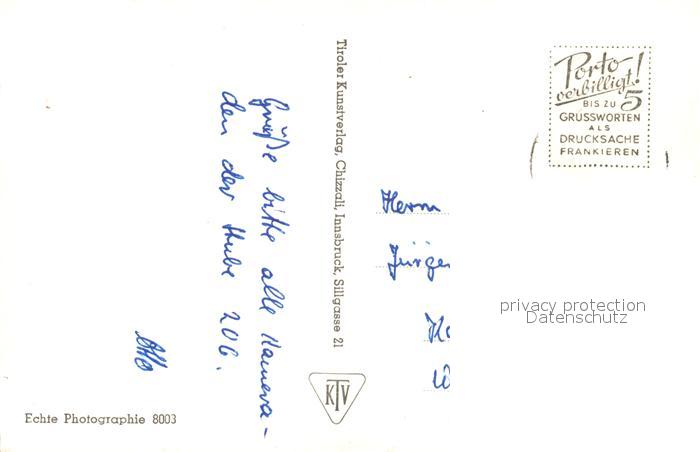 Grüße bitte alle Kamera-
den der Stube 206.
Otto
Echte Photographie 8003
Tiroler Kunstverlag, Chizzali, Innsbruck, Sillgasse 21
KTV
Porto
verbilligt!
BIS ZU 5
GRUSSWORTEN
ALS
DRUCKSACHE
FRANKIEREN
Herrn
Jürge
privacy protection
Datenschutz